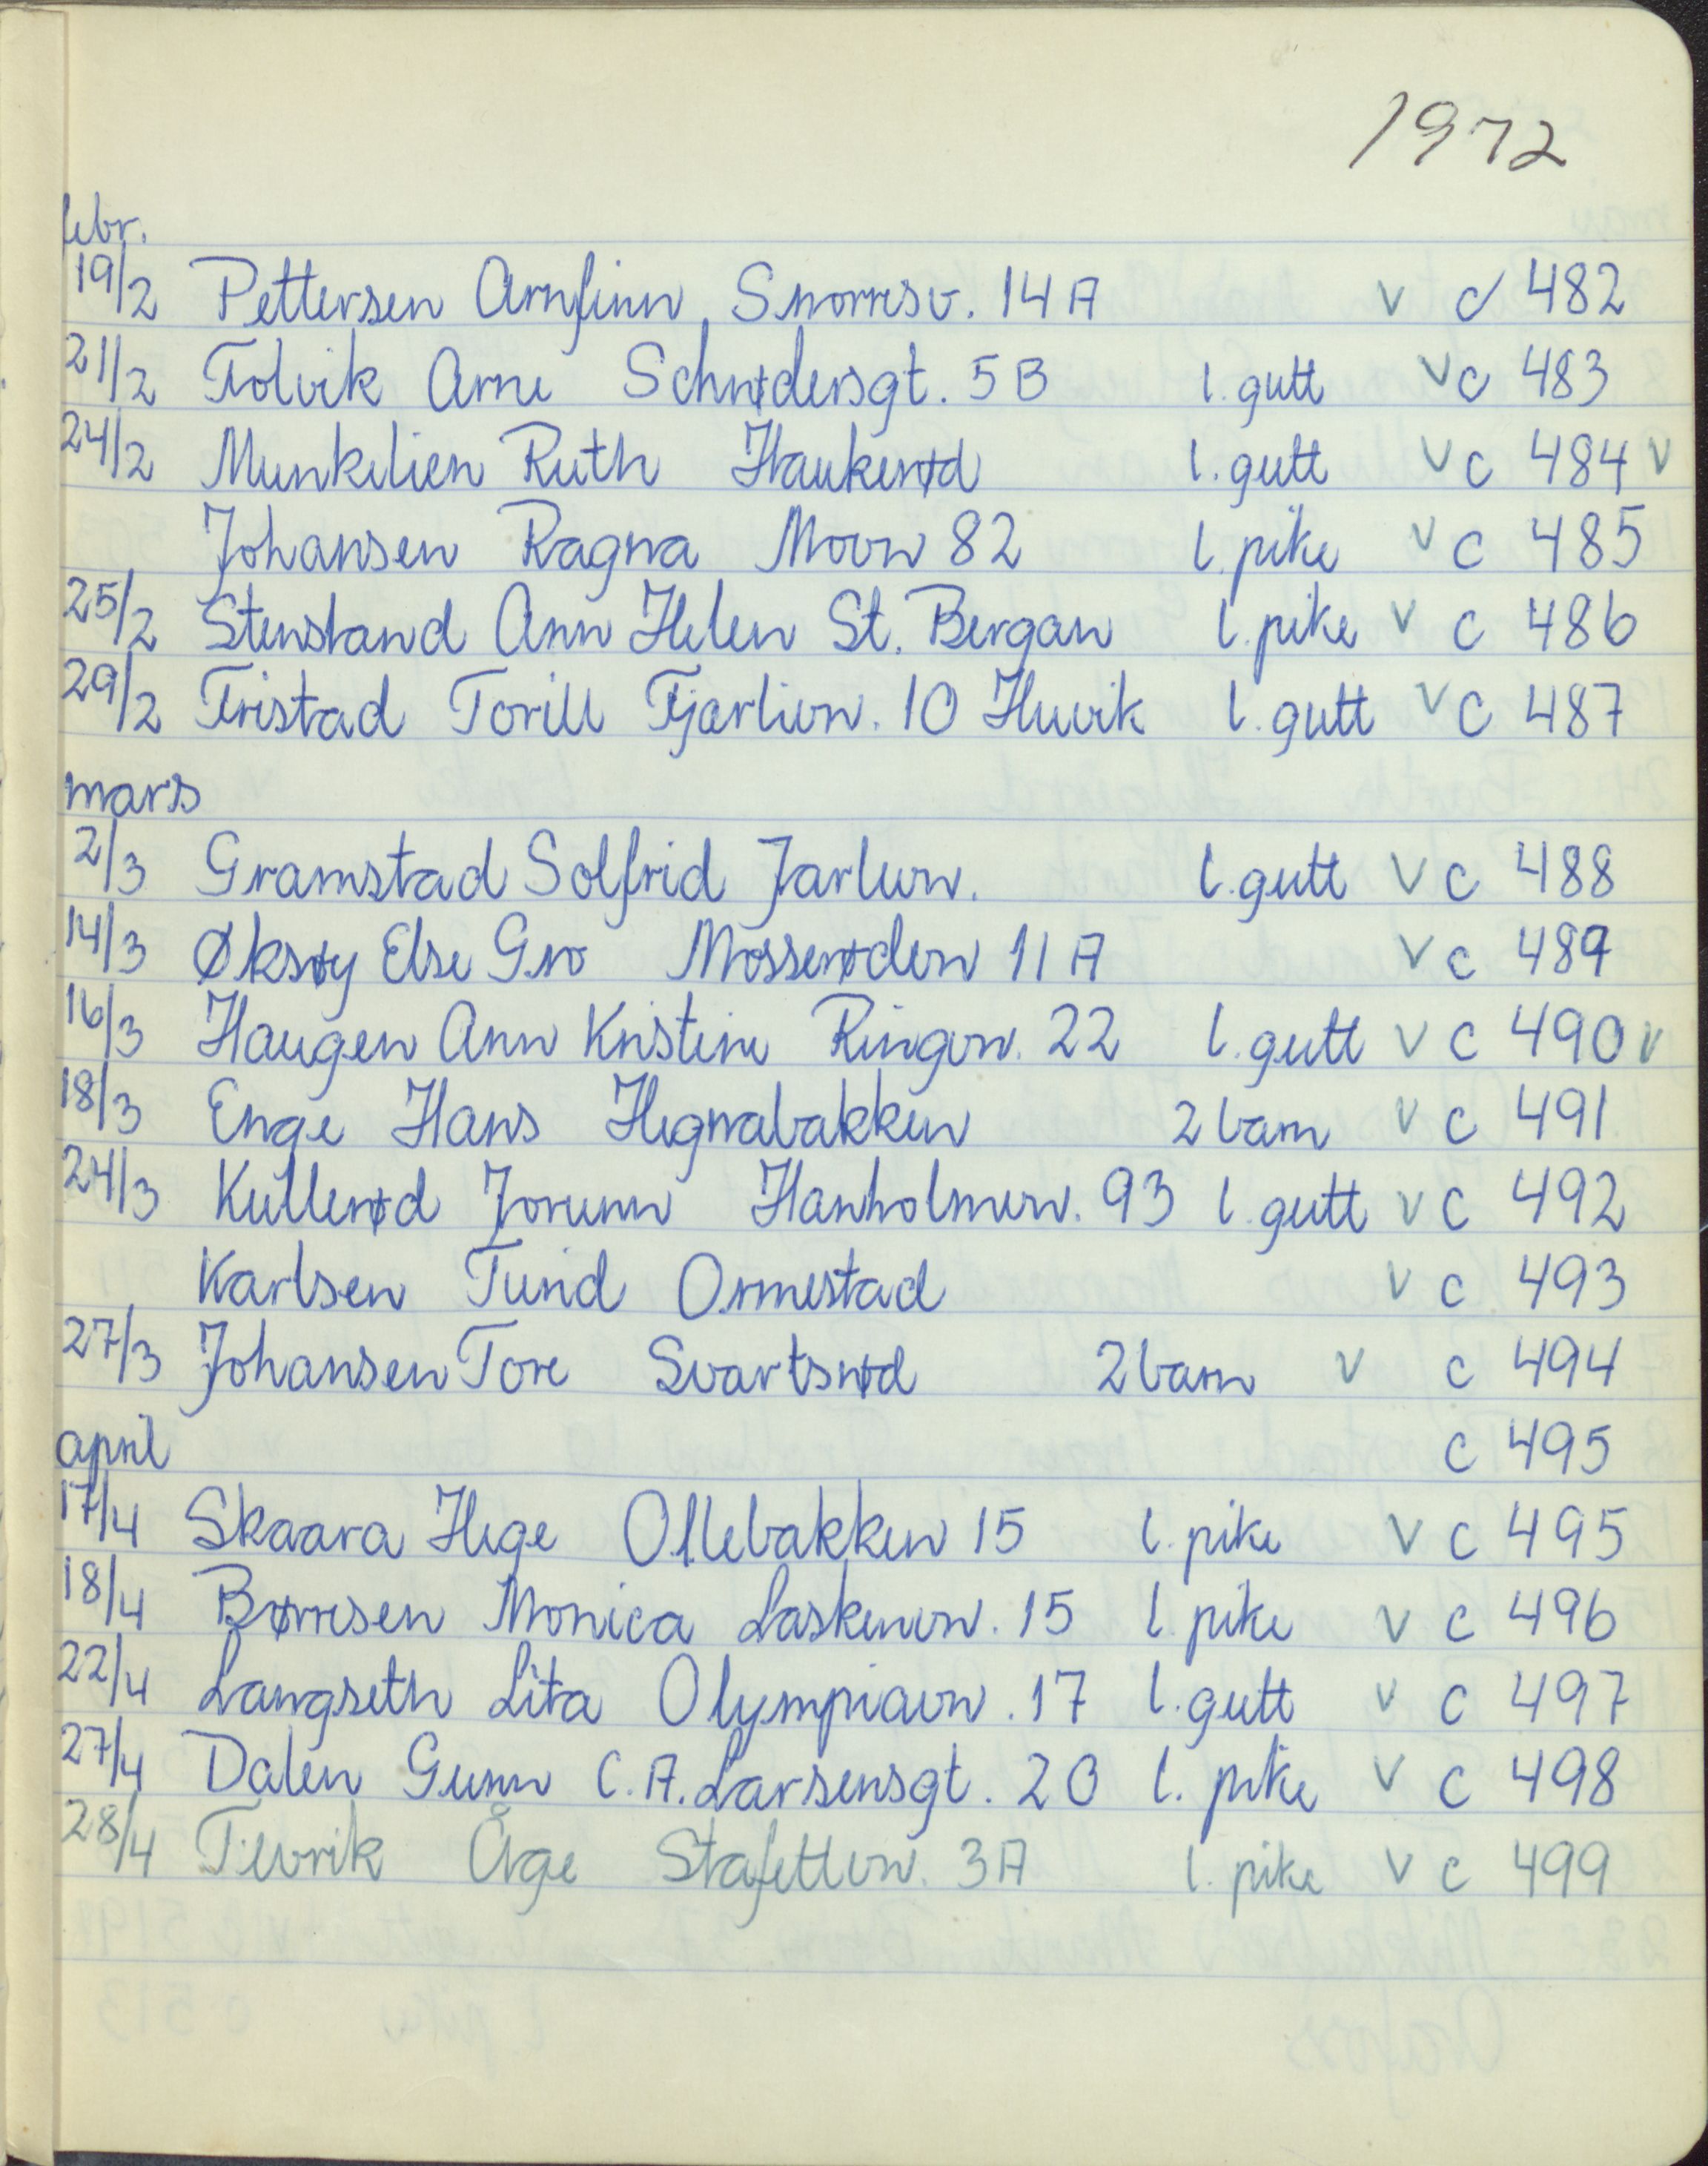 1972
febr.
19/2 Pettersen Arnfinn Snorresv. 14A v c 482
21/2 Folvik Arne Schrødersgt. 5B l. gutt v c 483
24/2 Munkelien Ruth Haukerød l. gutt v c 484 v
Johansen Ragna Movn 82 l. pike v c 485
25/2 Stensland Ann Helen St. Bergan l. pike v c 486
29/2 Fristad Torill Fjærlivn. 10 Huvik l. gutt v c 487
mars
2/3 Gramstad Solfrid Jarlevn. l. gutt v c 488
14/3 Øksøy Else Gro Mosserødvn 11A v c 489
16/3 Haugen Ann Kristine Ringvn. 22 l. gutt v c 490 v
18/3 Enge Hans Hegnabakken 2 barn v c 491
24/3 Kullerød Jorunn Hanholmvn. 93 l. gutt v c 492
Karlsen Turid Ormestad v c 493
27/3 Johansen Tore Svartsrød 2 barn v c 494
april c 495
17/4 Skaara Hege Ollebakken 15 l. pike v c 495
18/4 Børresen Monica Laskenvn. 15 l. pike v c 496
22/4 Langseth Lita Olympiavn. 17 l. gutt v c 497
27/4 Dalen Gunn C.A. Larsensgt. 20 l. pike v c 498
28/4 Åge Stafettvn. 3A l. pike v c 499